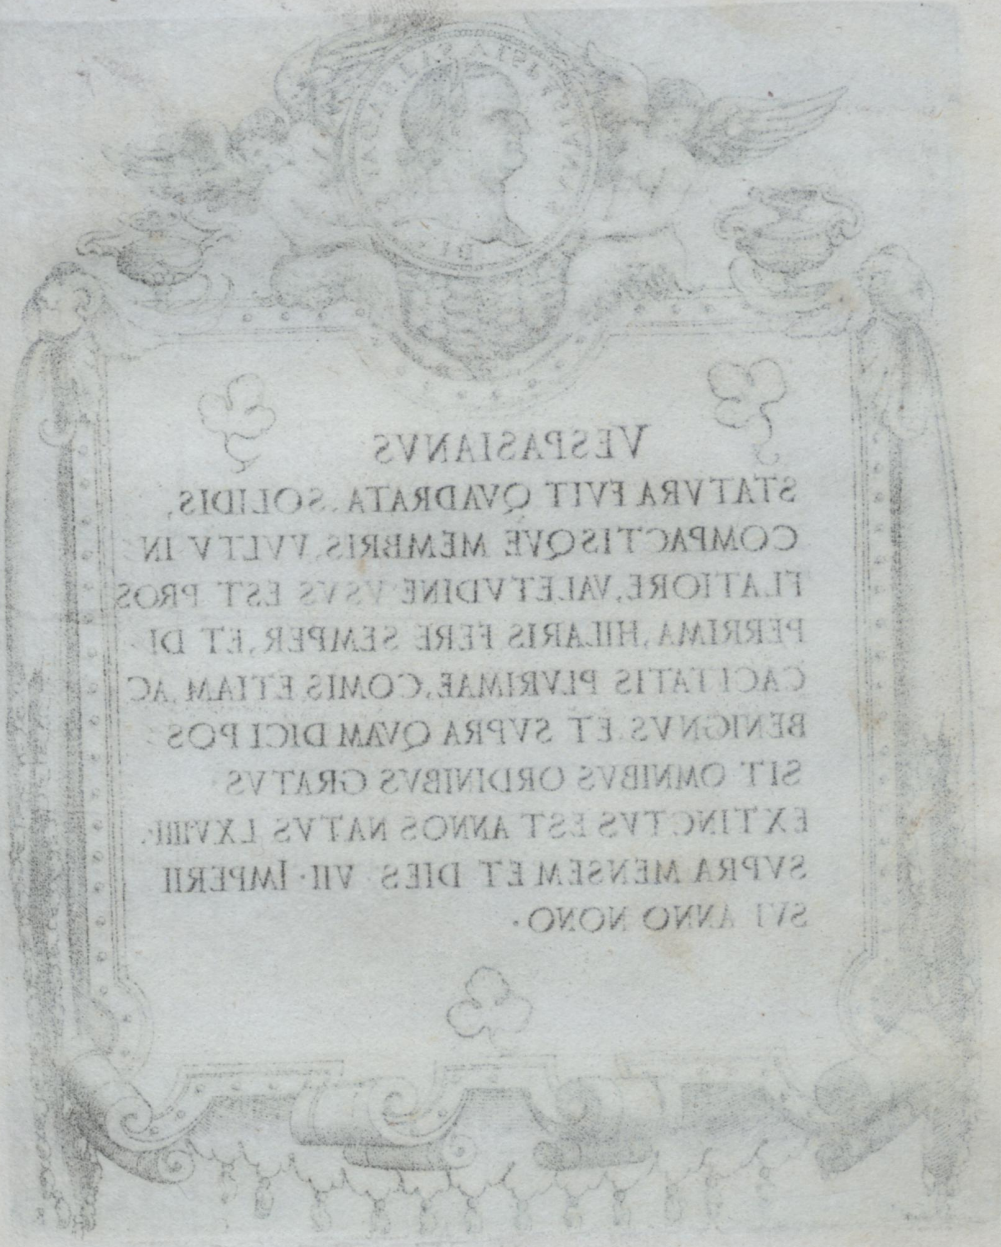 VESPASIANVS
STATVRA FVIT QVADRATA. SOLIDIS,
COMPACTISQVE MEMBRIS. VVLTV IN
FLATIORE, VALETVDINE VSVS EST PROS
PERRIMA, HILARIS FERE SEMPER, ET DI
CACITATIS PLVRIMAE, COMIS ETIAM, AC
BENIGNVS. ET SVPRA QVAM DICI POS
SIT OMNIBVS ORDINIBVS GRATVS
EXTINCTVS EST ANNOS NATVS LXVIIII.
SVPRA MENSEM ET DIES VII. IMPERII
SVI ANNO NONO.